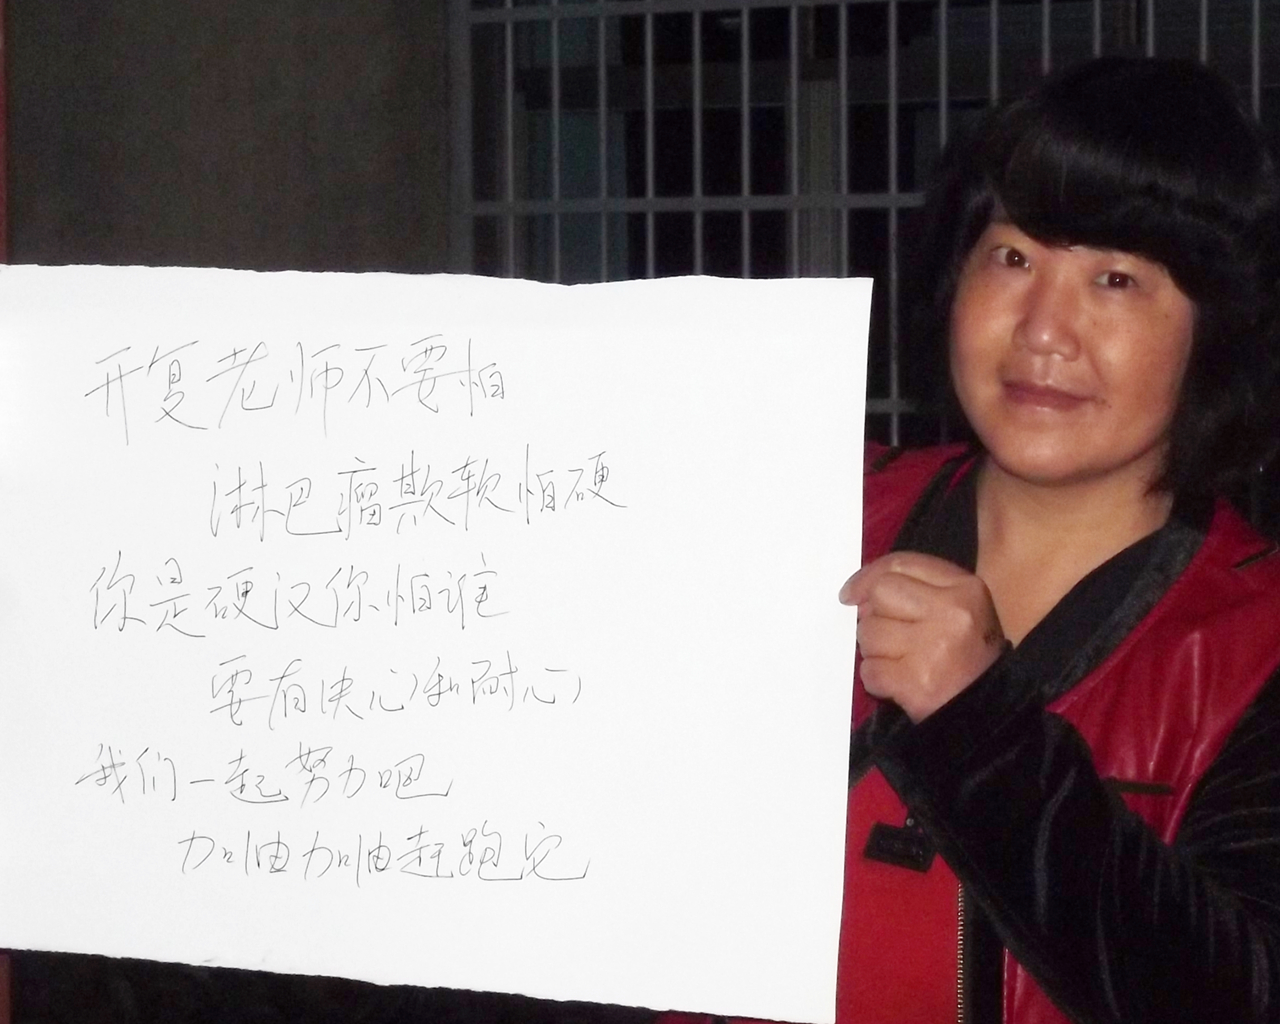 开复老师不要怕
淋巴瘤欺软怕硬
你是硬汉你怕谁
要有决心和耐心
我们一起努力吧
加油加油赶跑它